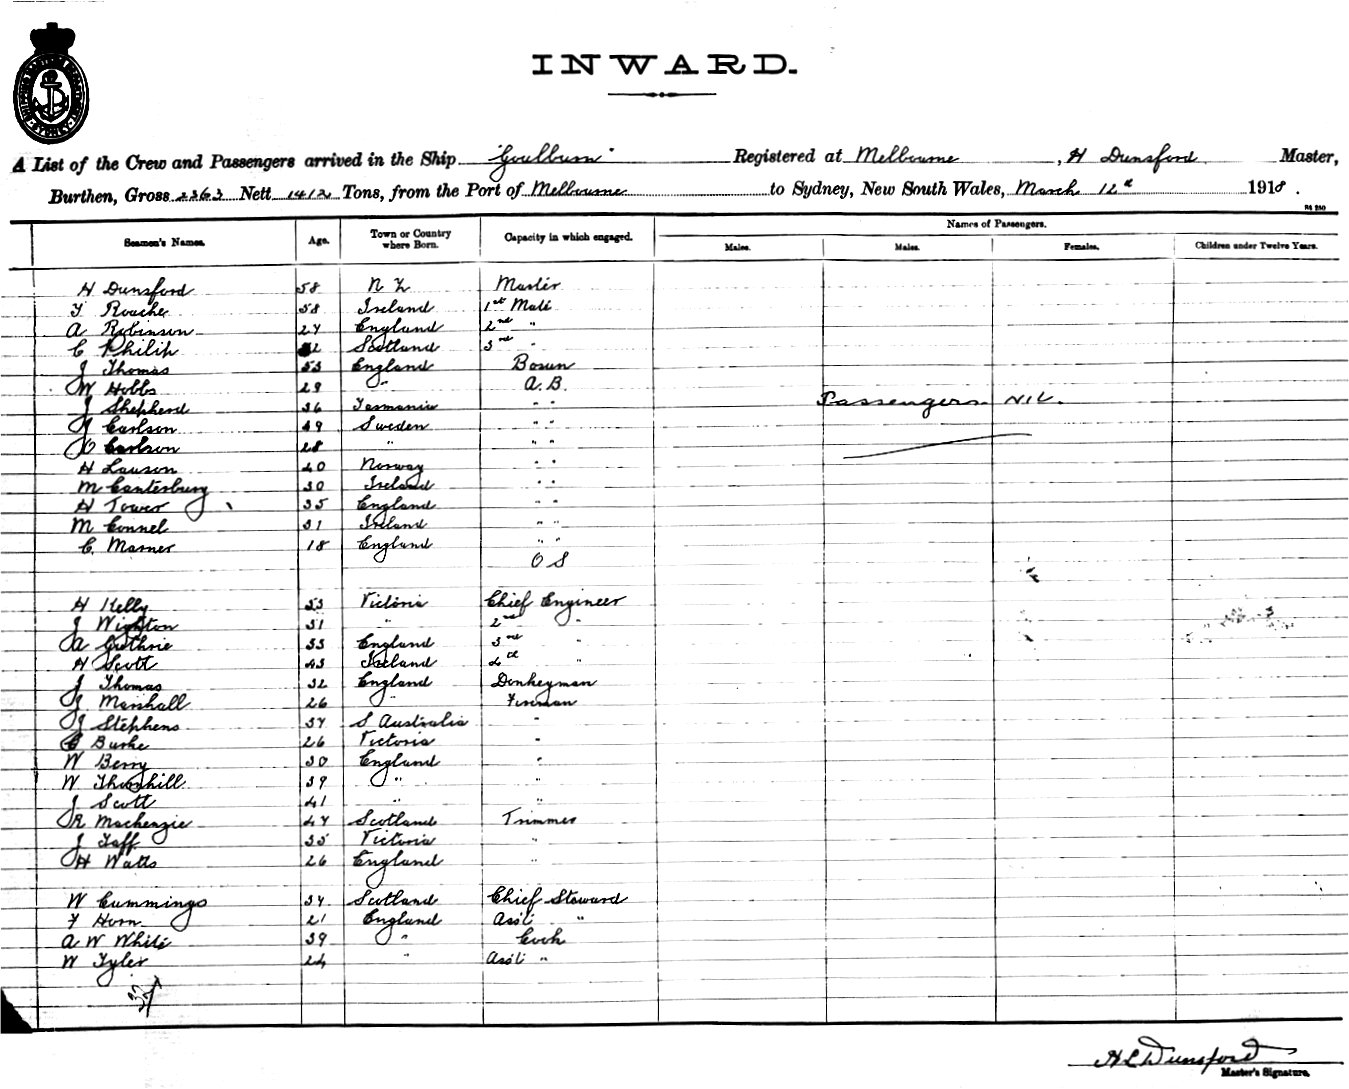 INWARD.
A List of the Crew and Passengers arrived in the Ship "Goulburn" Registered at Melbourne, H Dunsford Master,
Burthen, Gross 2363 Nett 1412 Tons, from the Port of Melbourne to Sydney, New South Wales, March 12th 1918.
Seamen's Names. Age. Town or Country where Born. Capacity in which engaged. Names of Passengers.
Males. Males. Females. Children under Twelve Years.
H Dunsford 58 N Z Master
F Roache 58 Ireland 1st Mate
A Robinson 27 England 2nd "
C Philip Scotland 3rd "
J Thomas 53 England Bosun
W Hobbs 29 " A.B.
J Shepherd 36 Tasmania " "
Passengers NIL.
J Carlson 49 Sweden " "
O Carlson 28 " " "
H Lauson 40 Norway " "
M Canterbury 30 Ireland " "
H Tower 35 England " "
M Connel 31 Ireland " "
C. Marner 18 England " "
O S
H Kelly 53 Victoria Chief Engineer
J Wighton 31 " 2nd "
A Guthrie 33 England 3rd "
H Scott 43 Ireland 4th "
J Thomas 32 England Donkeyman
J Marshall 26 " Fireman
J Stephens 37 S Australia "
Burke 26 Victoria "
W Berry 30 England "
W Thornhill 39 " "
J Scott 41 " "
R Mackenzie 47 Scotland Trimmer
J Taff 35 Victoria "
H Watts 26 England "
W Cummings 37 Scotland Chief Steward
F Horn 21 England Ass't "
A W White 39 " Cook
W Tyler 24 " Ass't "
H L Dunsford
Master's Signature.